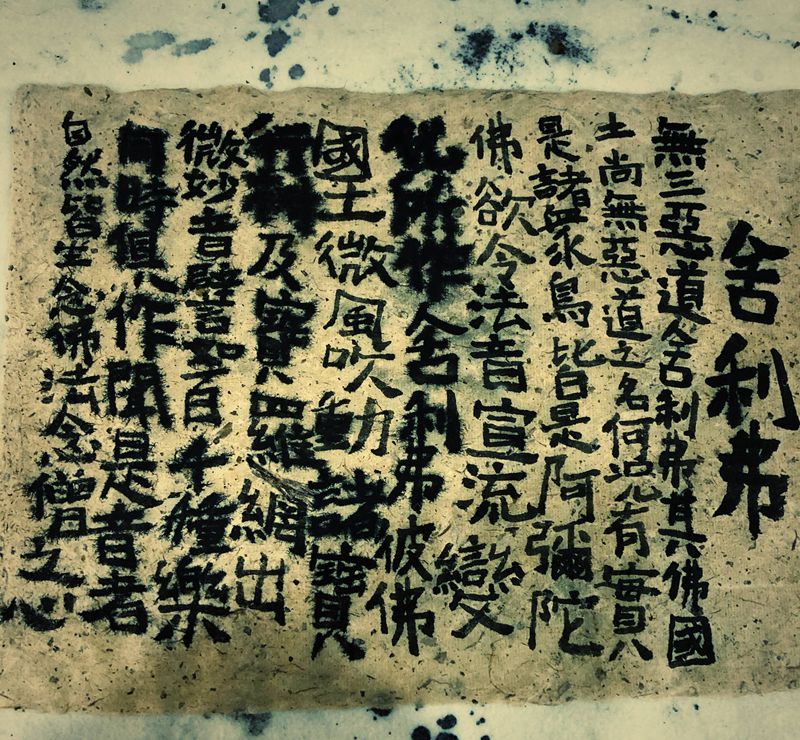 舍利弗
無三惡道舍利弗其佛國
土尚無惡道之名何況有實
是諸衆鳥皆是阿彌陀
佛欲令法音宣流變
化所作舍利弗彼佛
國土微風吹動諸寶
行樹及寶羅網出
微妙音譬如百千種樂
同時俱作聞是音者
自然皆生念佛法念僧之心